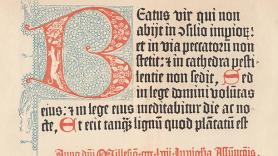 Beatus vir qui non
abijt in ꝯsilio impioꝝ:
et in via peccatorū non
stetit: ⁊ in cathedra pesti-
lentie non sedit, Sed
in lege domini volūtas
eius: ⁊ in lege eius meditabitur die ac no-
cte, Et erit tanq̄ lignū quod plātatū est
Anno dn̄i Millesimo